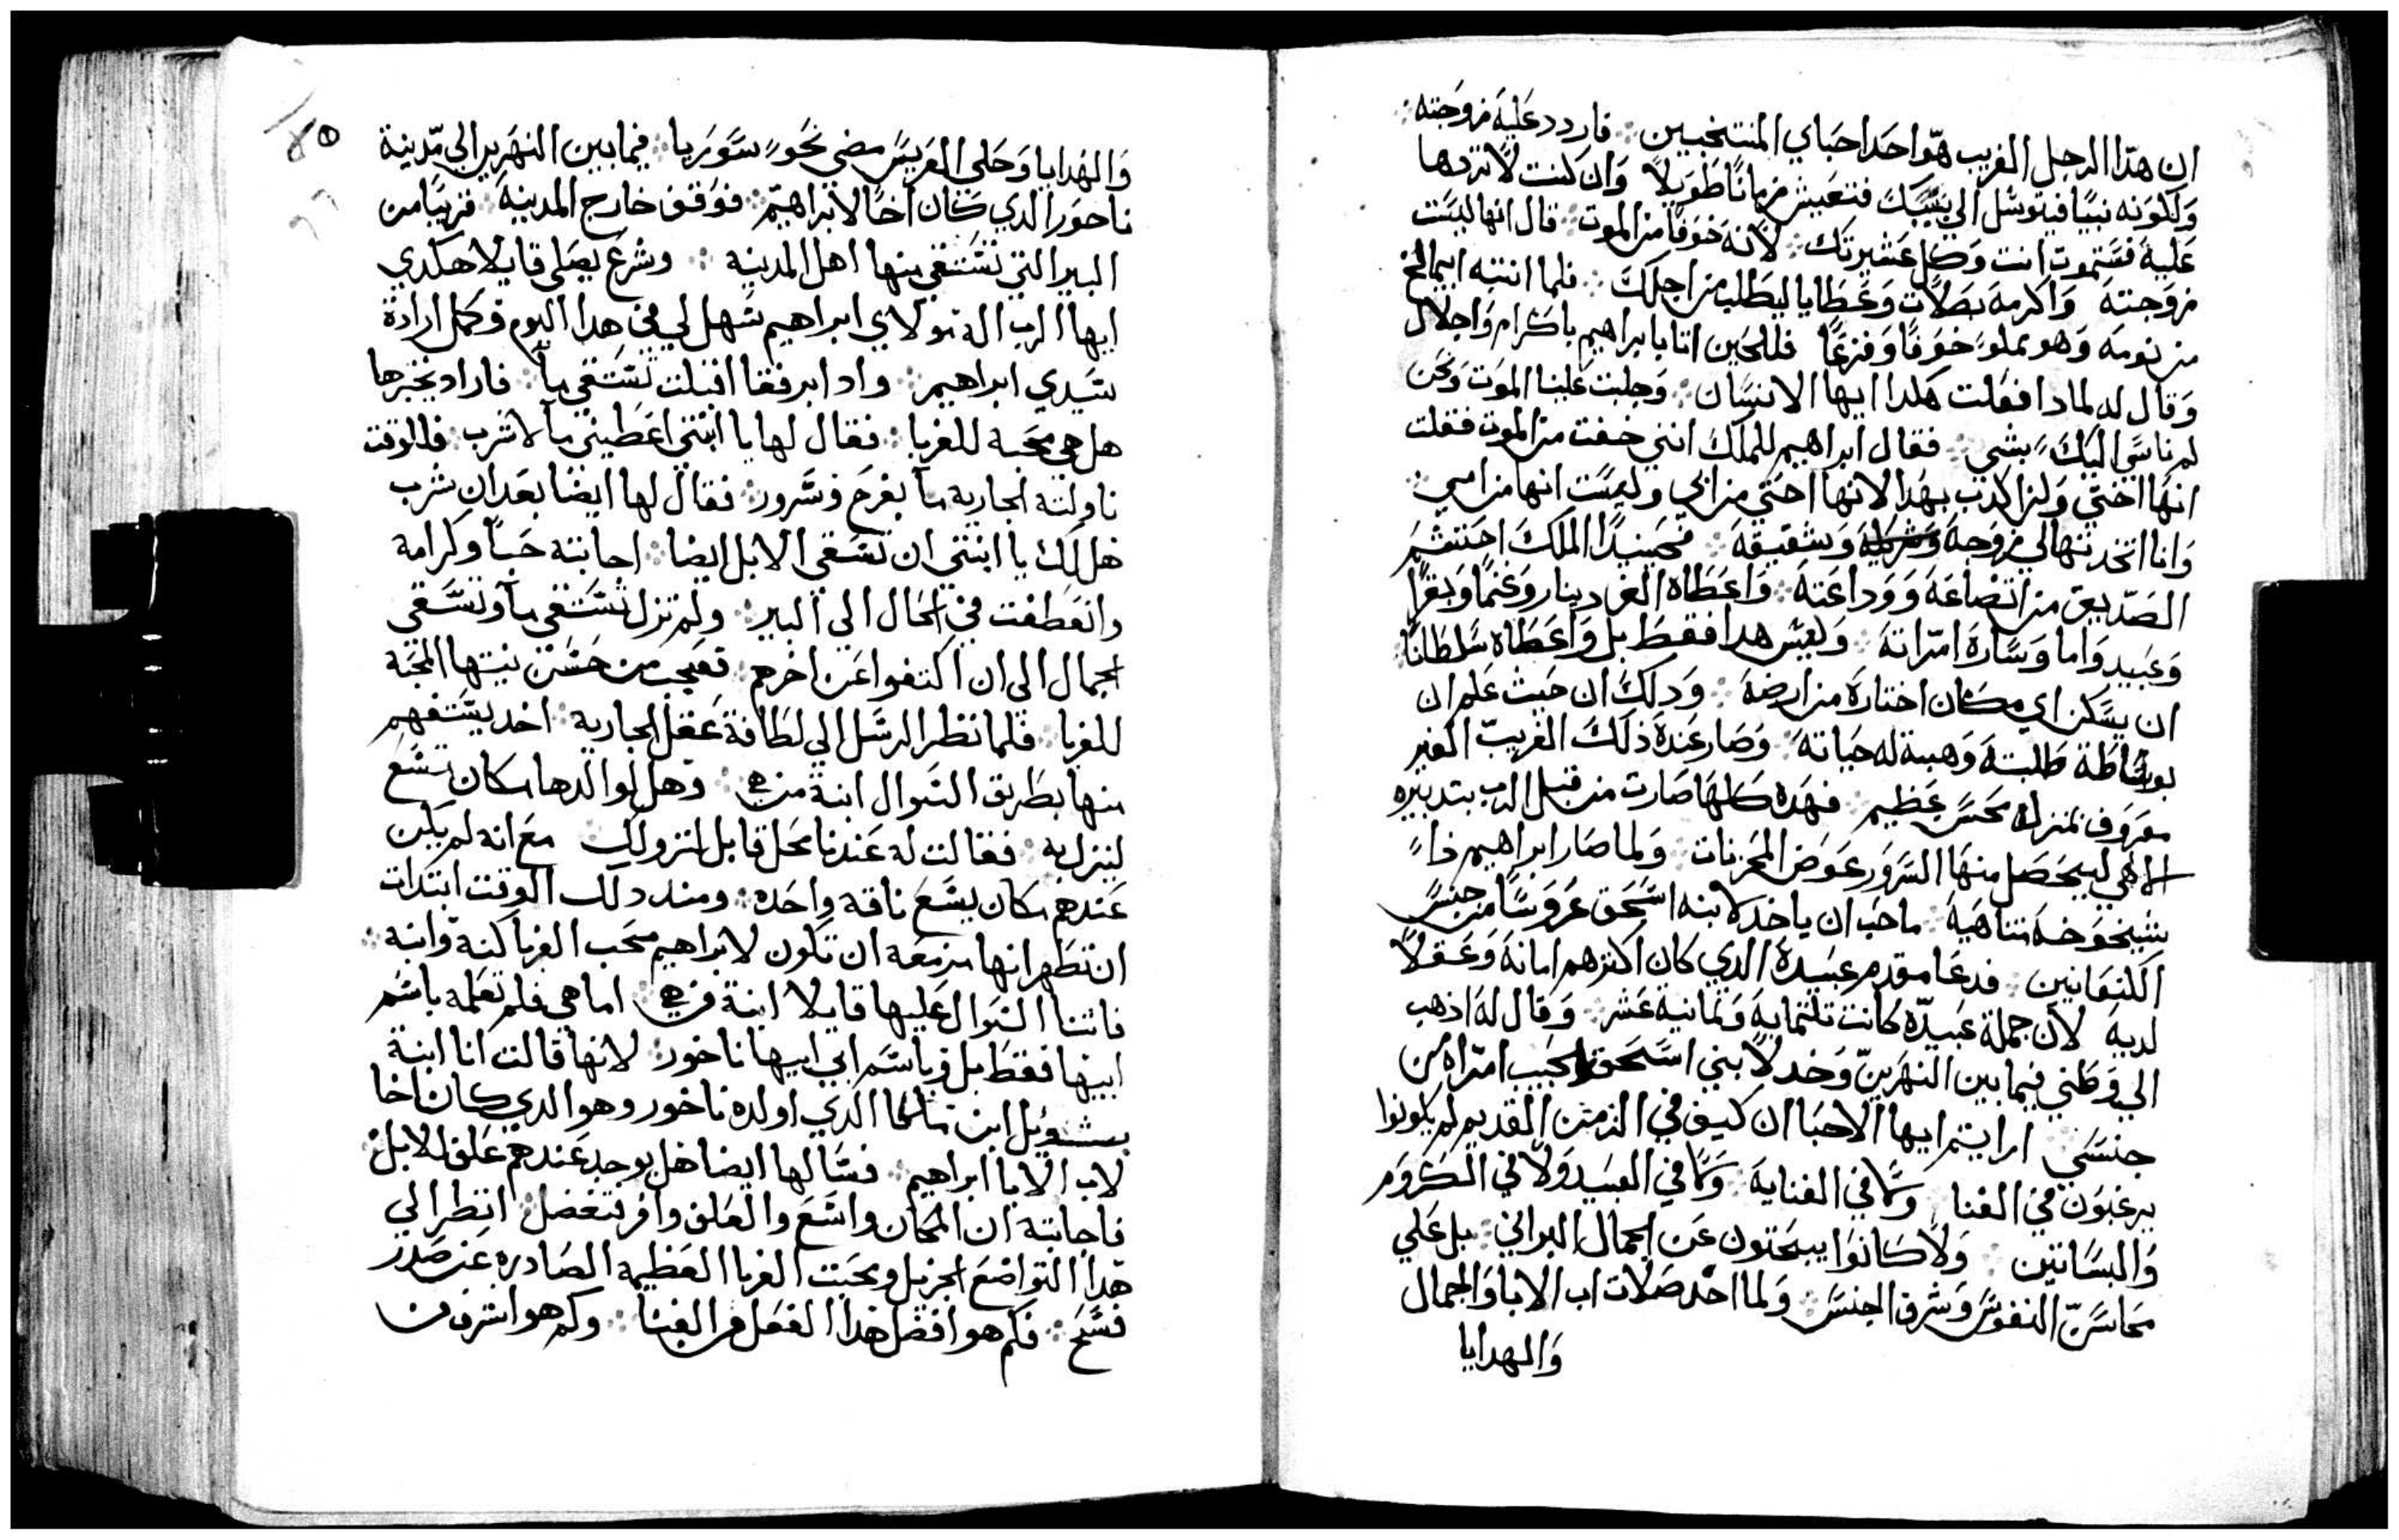 ان هدا الرجل الغريب هو احد احباي المنتخبين ܀ فاردد عليه زوجته ܀
ولكونه نبيًا فيتوسل الي بسببك فتعيش زمانًا طويلاً وان كنت لا تردها
عليه فستموت انت وكل عشيرتك ܀ لانه خوفًا من الموت ܀ قال انها ليست
زوجته واكرمه بصلات وعطايا ليطلب من اجلك ܀ فلما انتبه ابيمالخ
من نومه وهو مملو خوفًا وفزعًا فللحين اتا بابراهيم باكرام واجلال
وقال له لمادا فعلت هكدا ايها الانسان ܀ وجلبت علينا الموت ونحن
لم ناسي اليك بشي ܀ فقال ابراهيم للملك انني خفت من الموت فقلت
انها اختي ولم اكدب بهدا لانها اختي من ابي وليست انها من امي ܀
وانا اتخدتها لي زوجة وشقيقه ܀ فحينيدًا الملك احتشم
الصديق من اتضاعه ووداعته ܀ واعطاه الف دينار وغنمًا وبقرًا
وعبيد واما وسارة امراته ܀ وليس هدا فقط بل واعطاه سلطانًا
ان يسكن اي مكان اختاره من ارضه ܀ ودلك ان حيث علم ان
بوساطة طلبته وهبة له حياته ܀ وصار عنده ذلك الغريب الغير
معروف بمنزلة محسن عظيم ܀ فهده كلها صارت من قبل الرب بتدبيره
الالهي ليحصل منها السرور عوض المحزنات ܀ ولما صار ابراهيم ذا
شيخوخة متناهية ܀ ماحب ان ياخد لابنه اسحق عروسًا من جنس
الكنعانيين ܀ فدعا مقدم عبيده الدي كان اكترهم امانه وعقلاً
لديه لان جملة عبيده كانت تلتمايه وتمانية عشر ܀ وقال له اذهب
الي وطني فيما بين النهرين وخد لابني اسحق الحبيب امراه من
جنسي ܀ ارايتم ايها الاحبا ان كيف في الزمن القديم لم يكونوا
يرغبون في الغنا ولا في القنايه ܀ ولا في العبيد ولا في الكروم
والبساتين ܀ ولا كانوا يبحتون عن الجمال البراني ܀ بل علي
محاسن النفوس وشرف الجنس ܀ ولما اخد صلات اب الابا والجمال
والهدايا
٨٥
والهدايا وحلي العريس مضي نحو سوريا ܀ فيما بين النهرين الي مدينة
ناحور الدي كان اخًا لابراهيم ܀ فوقف خارج المدينه ܀ قريبًا من
البير التي تستقي منها اهل المدينه ܀ وشرع يصلي قايلا هكدي
ايها الرب اله مولاي ابراهيم سهل لي في هدا اليوم وكمل ارادة
سيدي ابراهيم ܀ واد ابرفقا اقبلت تستقي مآ ܀ فاراد يختبرها
هل هي محبه للغربا ܀ فقال لها يا ابنتي اعطيني مآ لاشرب ܀ فللوقت
ناولته الجاريه مآ بفرح وسرور ܀ فقال لها ايضا بعد ان شرب
هل لك يا ابنتي ان تسقي الابل ايضا ܀ اجابته حبًا وكرامة
وانعطفت في الحال الي البير ܀ ولم تزل تستقي مآ وتسقي
الجمال الى ان اكتفوا عن اخرهم ܀ فعجب من حسن نيتها المحبة
للغربا ܀ فلما نظر الرسل الي لطافة عقل الجارية ܀ اخد يستفهم
منها بطريق السوال ابنة من هي ܀ وهل لوالدها مكان يسع
لينزل به ܀ فقالت له عندنا محل قابل لنزولك ܀ مع انه لم يكن
عندهم مكان يسع ناقة واحده ܀ ومند دلك الوقت ابتدات
ان تظهر انها مزمعه ان تكون لابراهيم محب الغربا كنة وابنه ܀
فاتنا السوال عليها قايلا ابنة من هي ܀ اما هي فلم تعلمه باسم
ابيها فقط بل وباسم ابي ابيها ناخور ܀ لانها قالت انا ابنة
بتوئيل ابن ملكا الدي اولده ناخور وهو الدي كان اخا
لاب الابا ابراهيم ܀ فسالها ايضا هل يوجد عندهم علف للابل ܀
فاجابته ان المكان واسع والعلف وافر بتفضل ܀ انظر الي
هدا التواضع الجزيل ومحبت الغربا العظيمه الصادره عن صدر
فسح ܀ فكم هو افضل هذا الفعل من الغنا ܀ وكم هو اشرف من